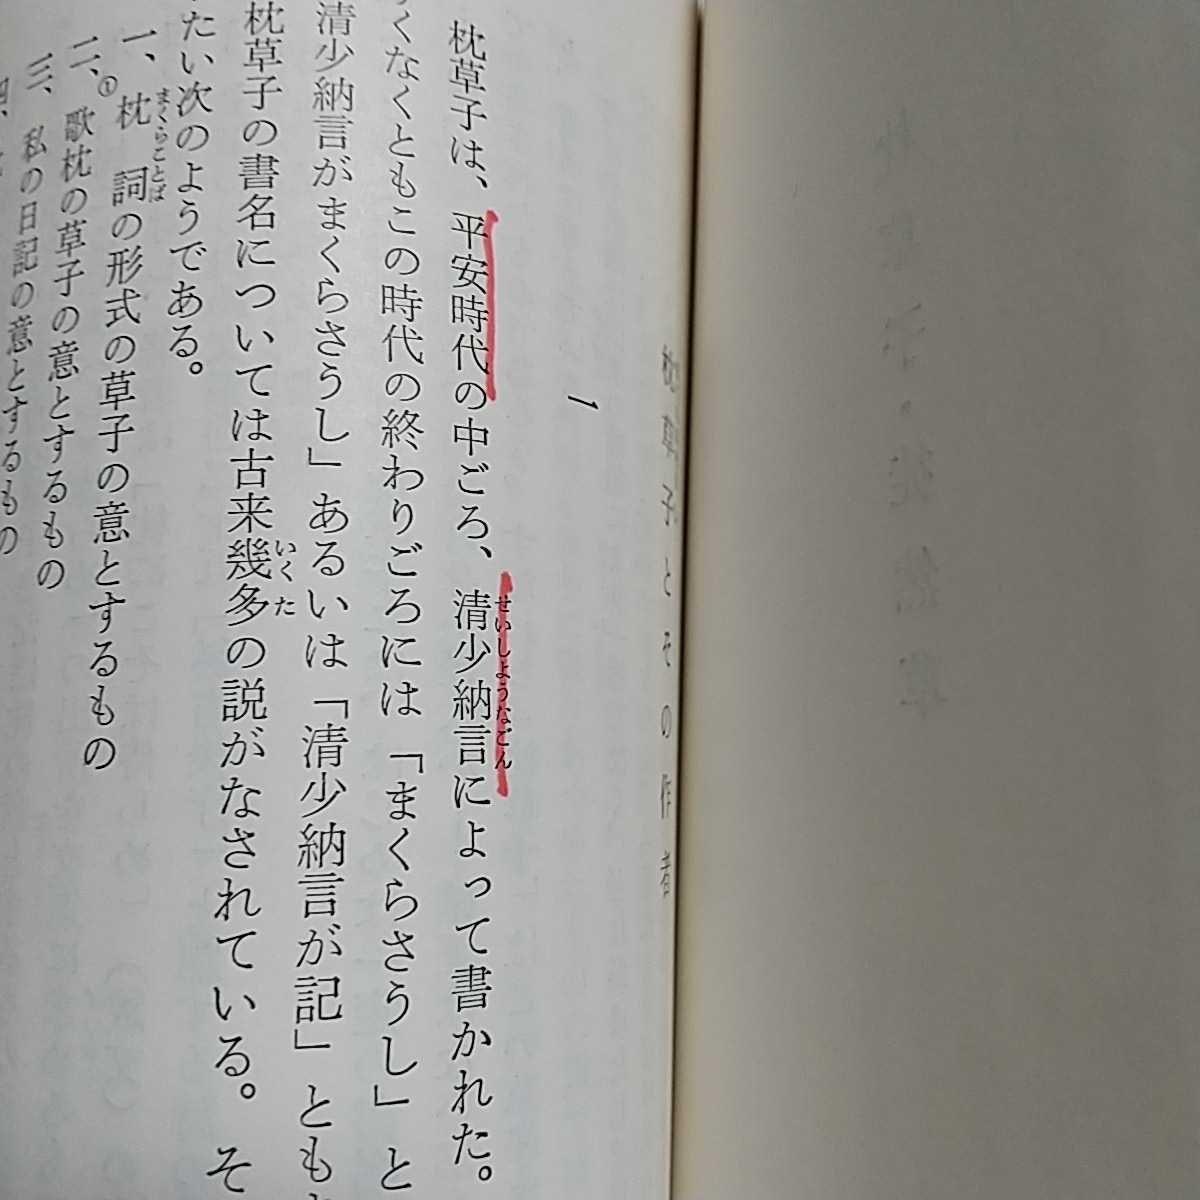 枕草子とその作者
1
枕草子は、平安時代の中ごろ、清少納言によって書かれた。
せいしようなごん
くなくともこの時代の終わりごろには「まくらさうし」と
清少納言がまくらさうし」あるいは「清少納言が記」とも
枕草子の書名については古来幾多の説がなされている。そ
いくた
たい次のようである。
一、枕詞の形式の草子の意とするもの
まくらことば
①
二、歌枕の草子の意とするもの
三、私の日記の意とするもの
四、